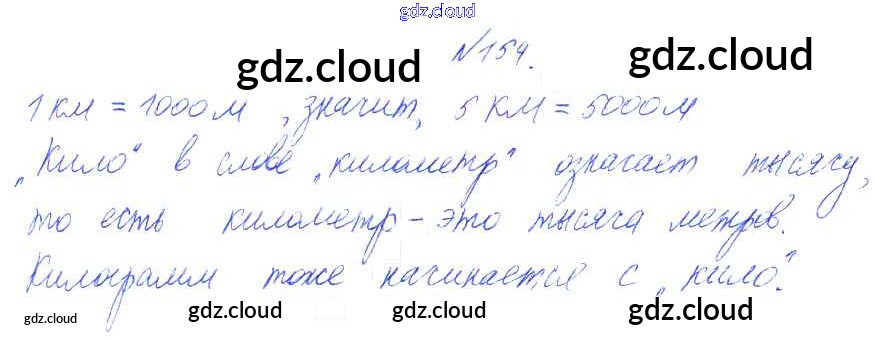 gdz.cloud
№154.
gdz.cloud gdz.cloud
1 км = 1000 м, значит, 5 км = 5000 м
„Кило“ в слове „километр“ означает тысячу,
то есть километр - это тысяча метров.
Килограмм тоже начинается с „кило“.
gdz.cloud gdz.cloud gdz.cloud gdz.cloud